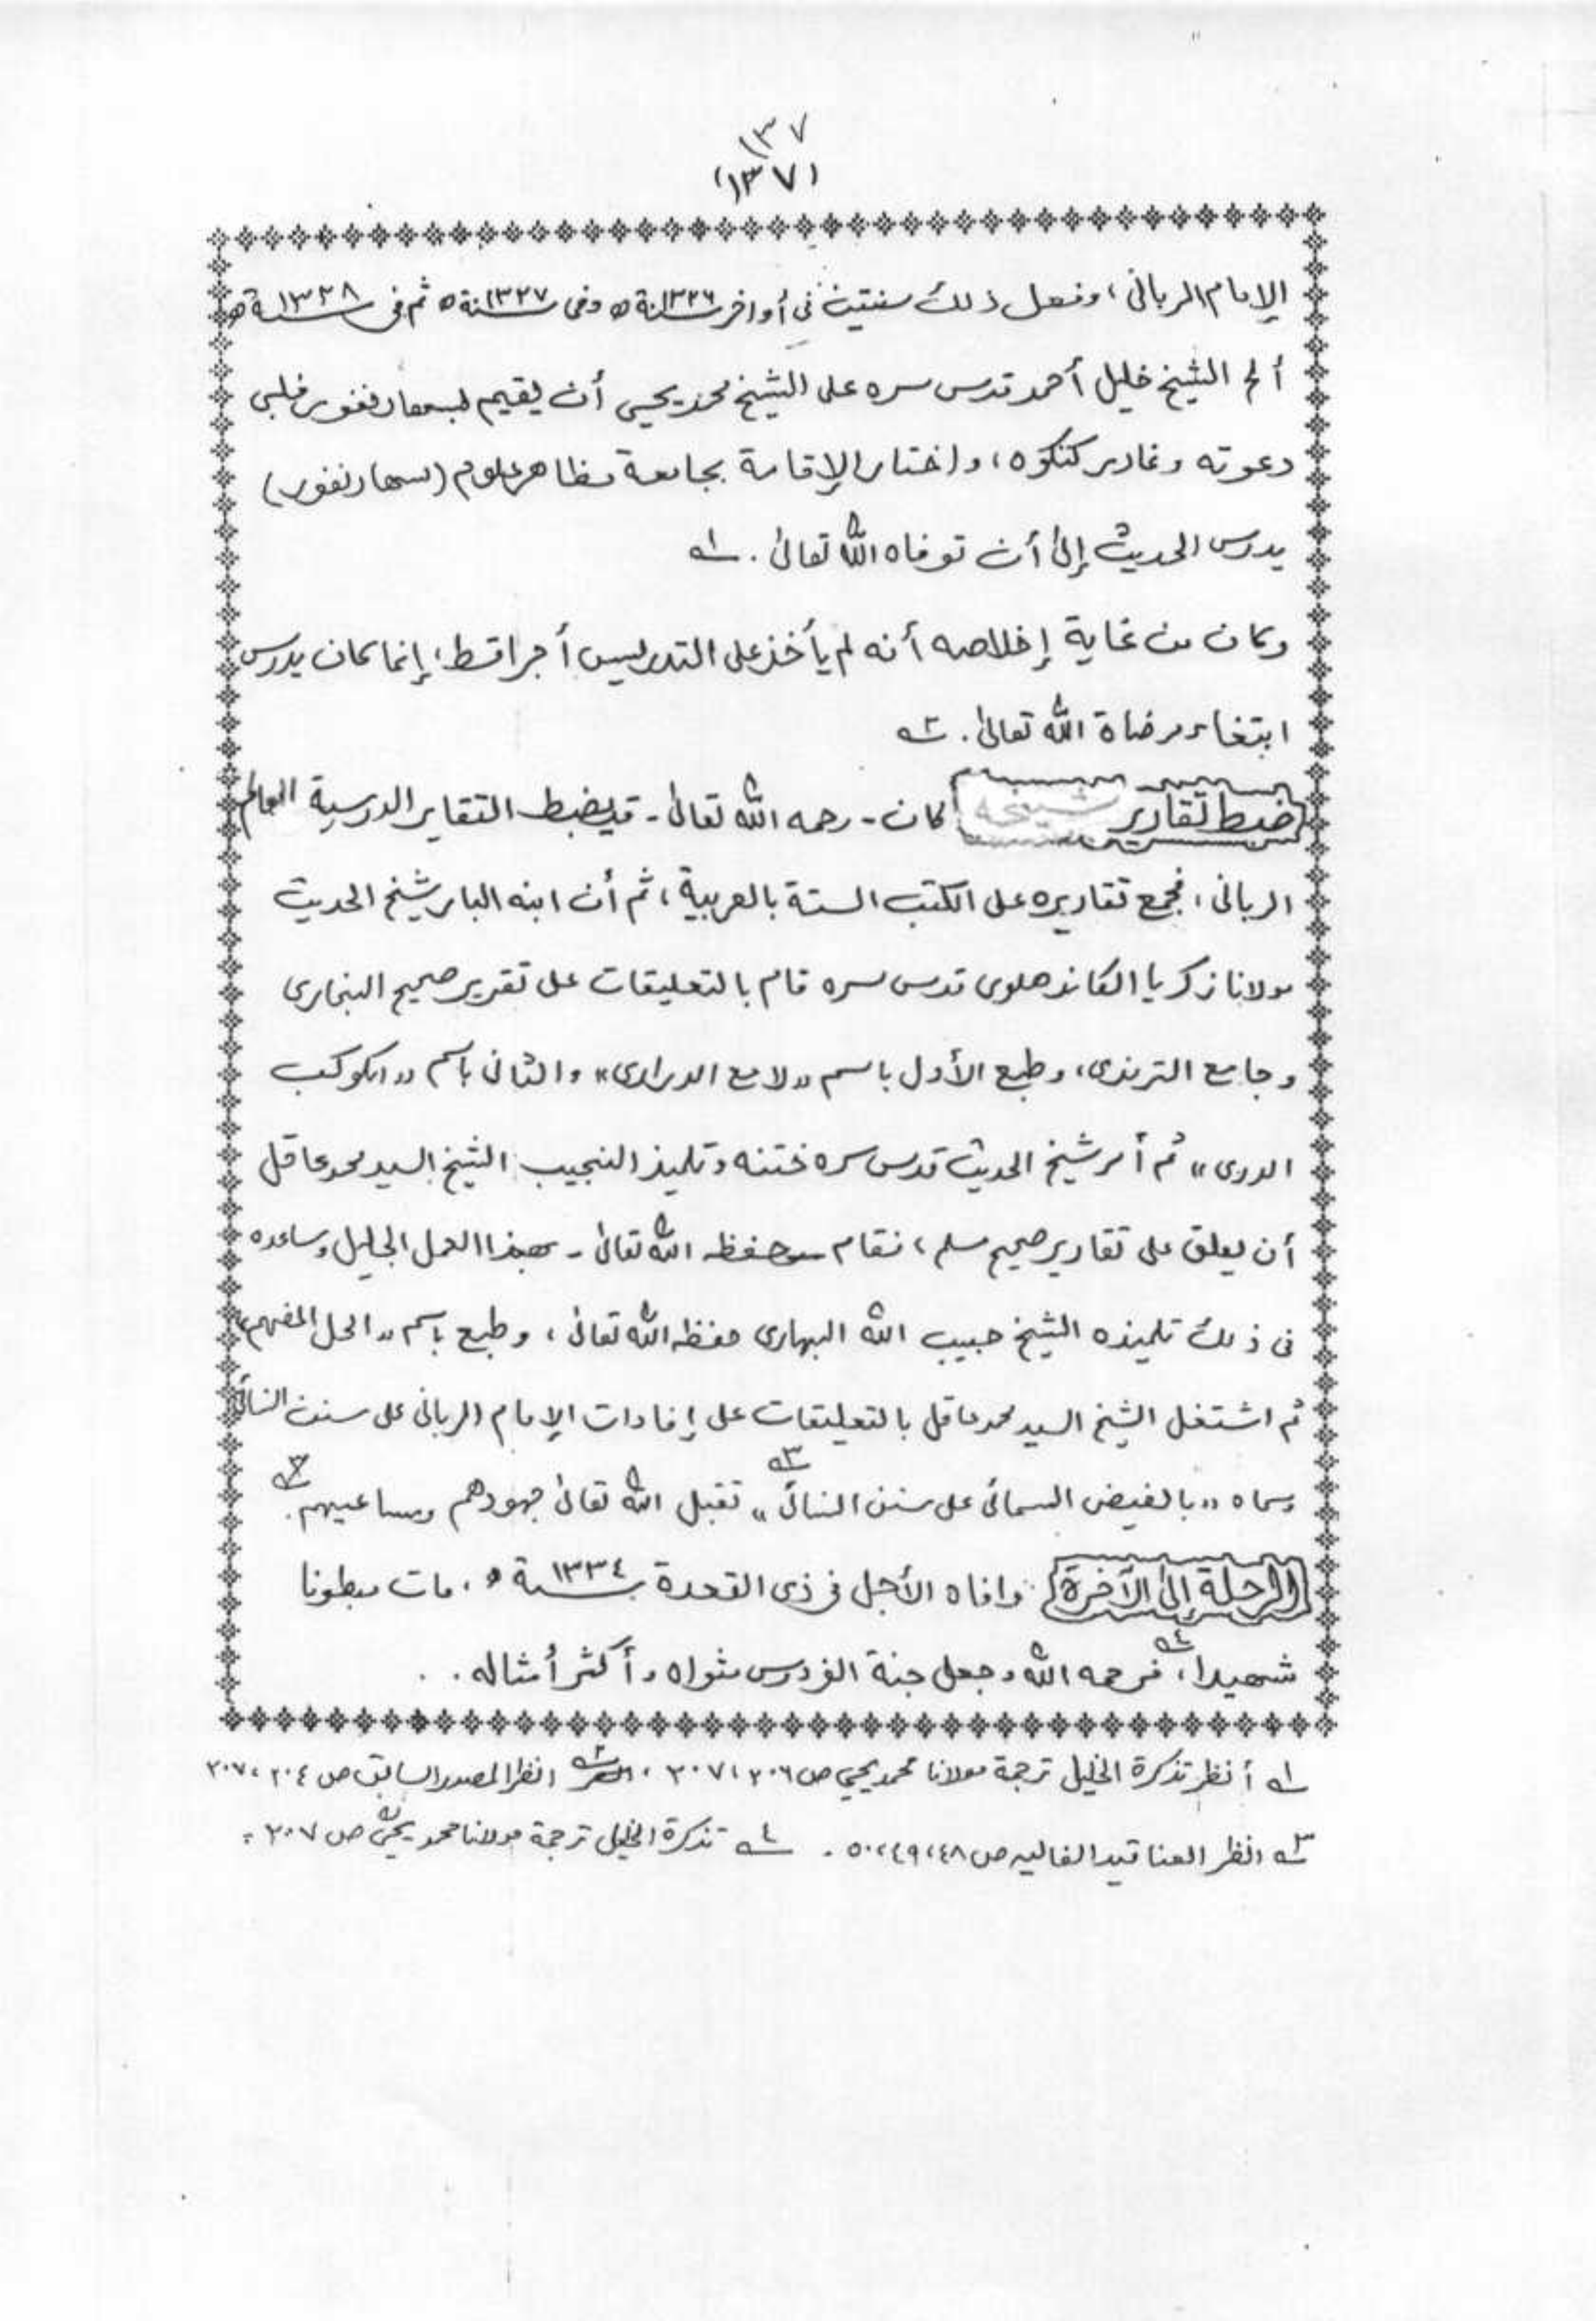 ١٣٧
(١٣٧)
الإمام الربانى، وفعل ذلك سنتين فى أواخر سنة ١٣٢٦ ه وفى سنة ١٣٢٧ ه ثم فى سنة ١٣٢٨ ه
ألح الشيخ خليل أحمد قدس سره على الشيخ محمد يحيى أن يقيم بسهارنفور فلبى
دعوته وغادر كنكوه، واختار الإقامة بجامعة مظاهر علوم (سهارنفور)
يدرس الحديث إلى أن توفاه الله تعالى. ١ه
وكان من غاية إخلاصه أنه لم يأخذ على التدريس أجرا قط، إنما كان يدرس
ابتغاء مرضاة الله تعالى. ٢ه
ضبط تقارير شيخه كان - رحمه الله تعالى - قد يضبط التقاير الدرسية العالم
الربانى، فجمع تقاريره على الكتب الستة بالعربية، ثم أن ابنه البار شيخ الحديث
مولانا زكريا الكاندهلوى قدس سره قام بالتعليقات على تقرير صحيح البخارى
وجامع الترمذى، وطبع الأول باسم «لامع الدرارى» والثانى باسم «الكوكب
الدرى» ثم أمر شيخ الحديث قدس سره ختنه وتلميذ النجيب الشيخ السيد محمد عاقل
أن يعلق على تقارير صحيح مسلم، فقام - حفظه الله تعالى - بهذا العمل الجليل وساعده
فى ذلك تلميذه الشيخ حبيب الله البهارى حفظه الله تعالى، وطبع باسم «الحل المفهم»
ثم اشتغل الشيخ السيد محمد عاقل بالتعليقات على إفادات الإمام الربانى على سنن النسائى
وسماه «بالفيض السمائى على سنن النسائى» ٣ه تقبل الله تعالى جهودهم ومساعيهم. ٣ه
الرحلة إلى الآخرة وافاه الأجل فى ذى القعدة سنة ١٣٣٤ ه، مات مبطونا
شهيدا، ٤ه فرحمه الله وجعل جنة الفردوس مثواه وأكثر أمثاله..
١ه أنظر تذكرة الخليل ترجمة مولانا محمد يحيى ص ٢٠٦، ٢٠٧، ٢ه انظر المصدر السابق ص ٢٠٤، ٢٠٧
٣ه انظر العناقيد الغاليه ص ٤٨، ٤٩، ٥٠. ٤ه تذكرة الخليل ترجمة مولانا محمد يحيى ص ٢٠٧